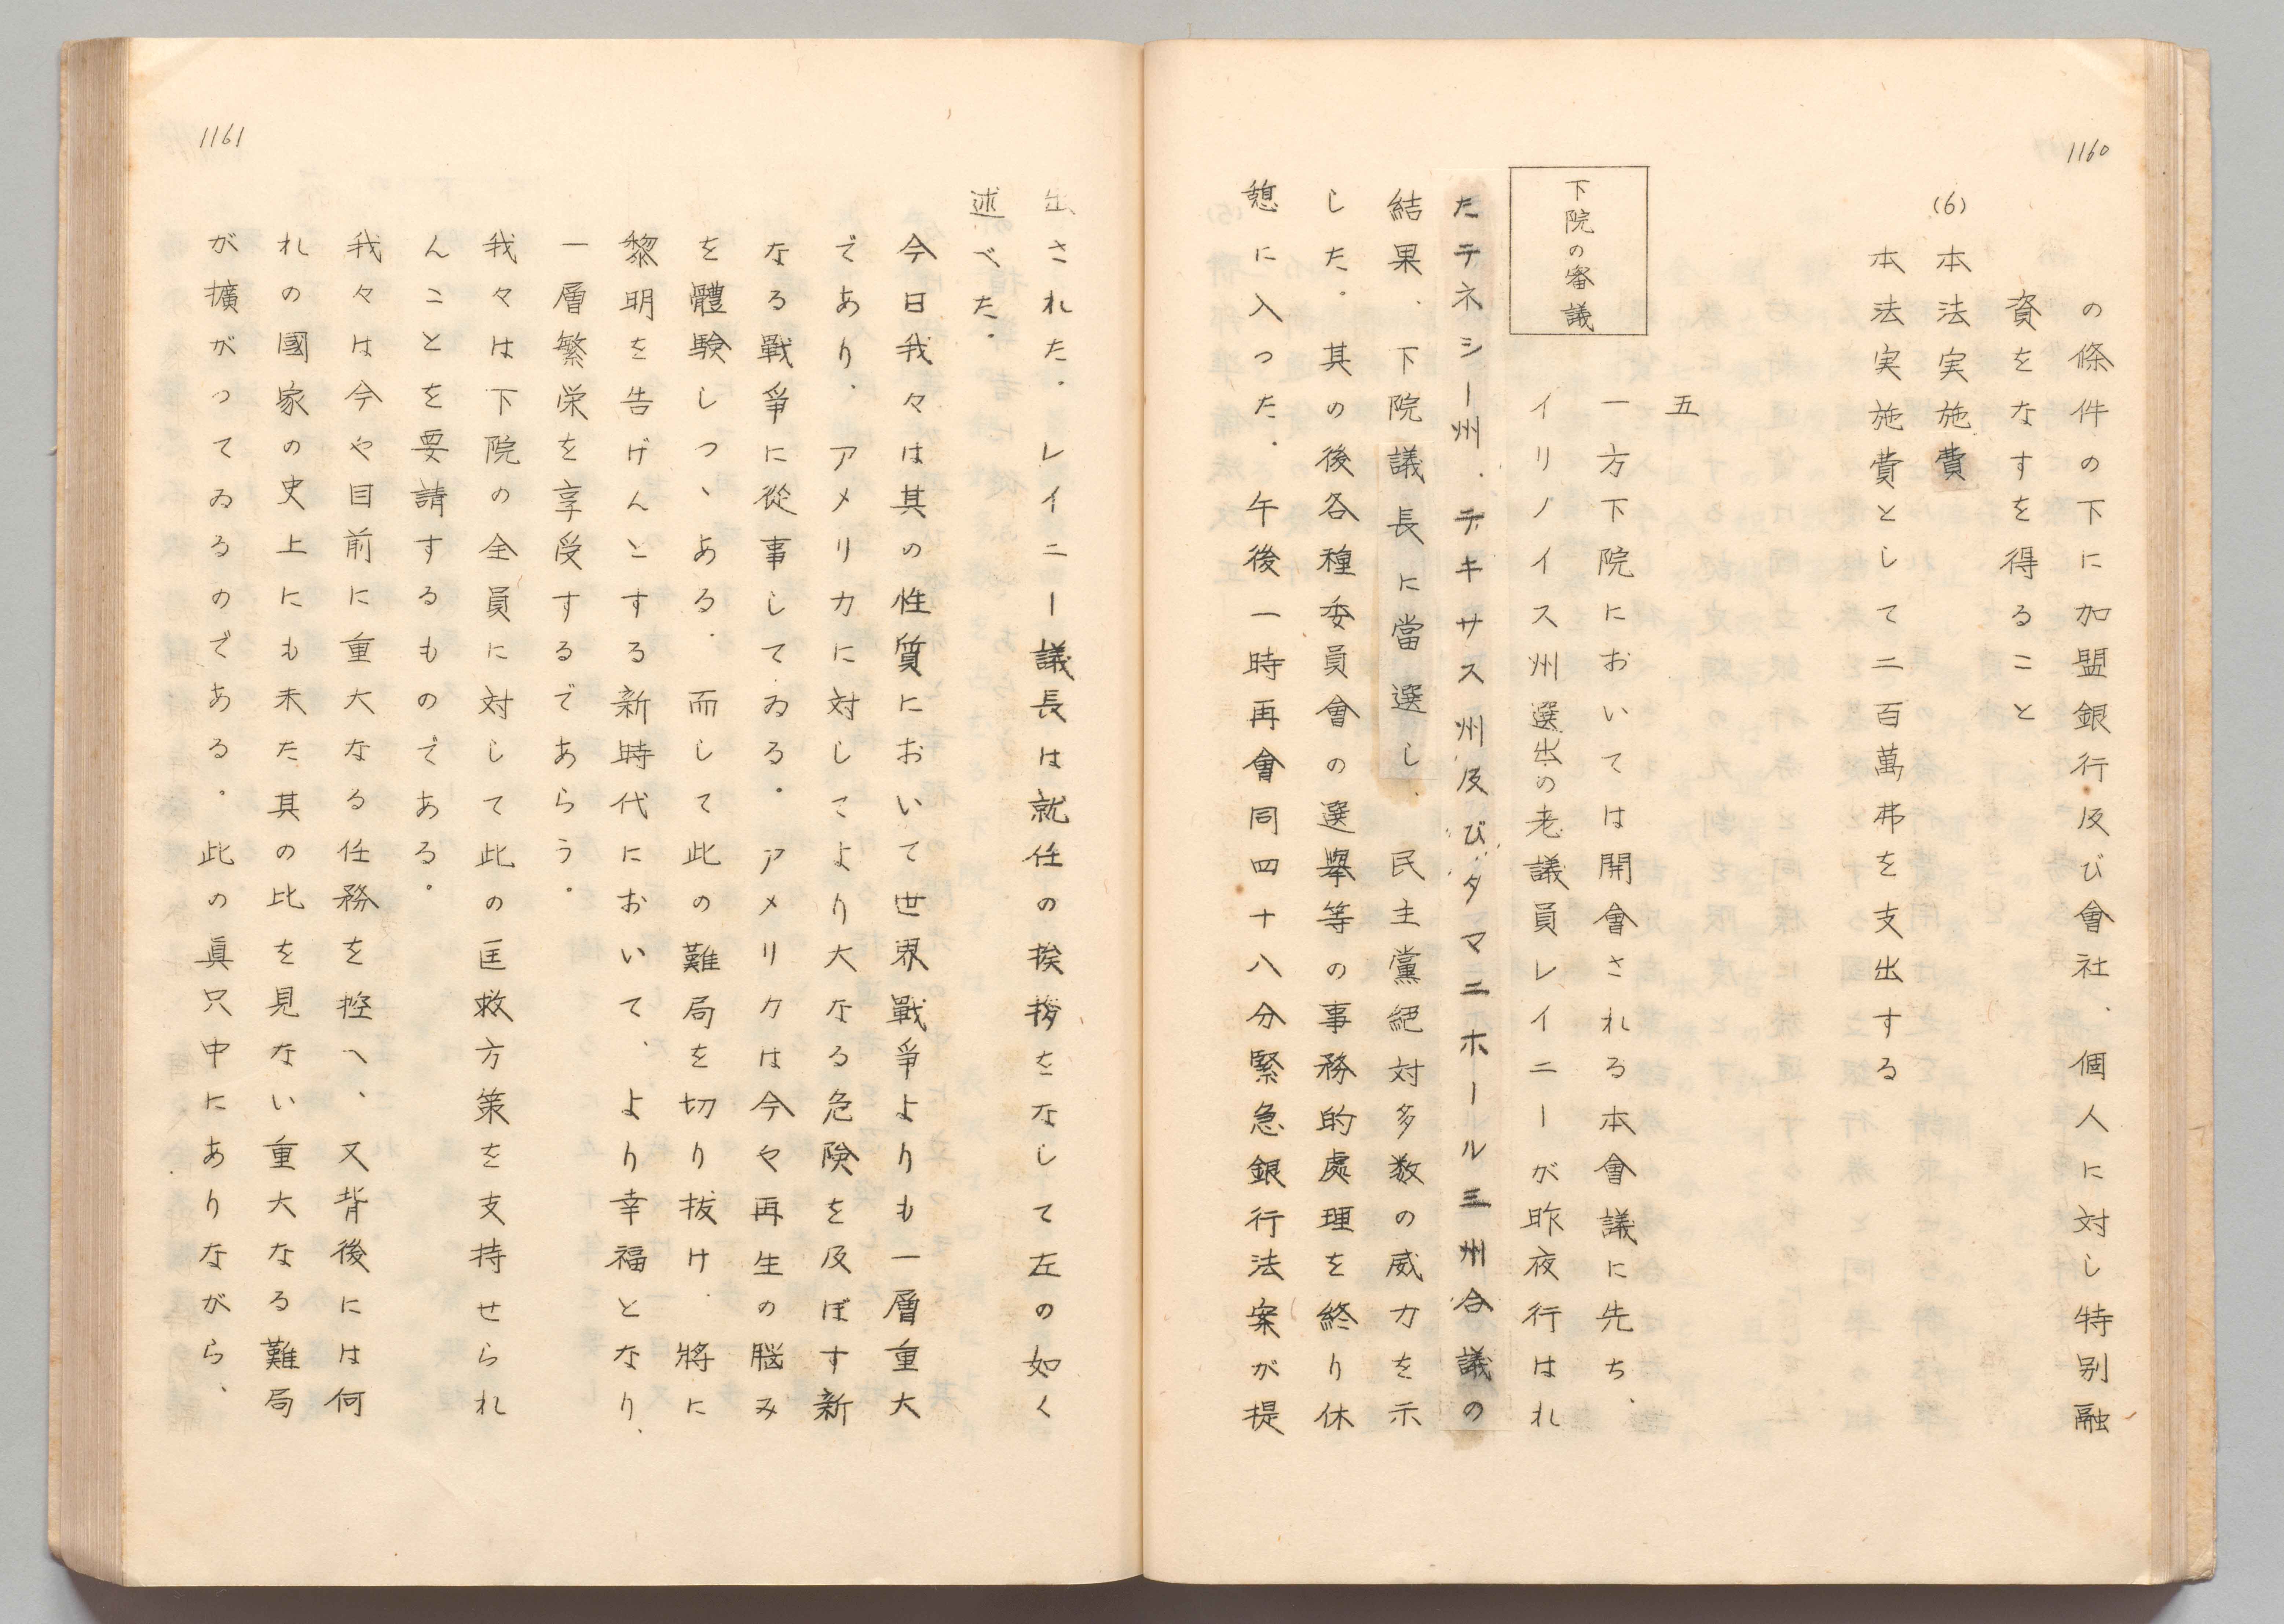 1160
の條件の下に加盟銀行及び會社、個人に対し特別融
資をなすを得ること
(6)本法実施費
本法実施費として二百萬弗を支出する
五
下院の審議
一方下院においては開會される本會議に先ち、
イリノイス州選出の老議員レイニーが昨夜行はれ
たテネシー州、テキサス州及びタマニホール三州合議の
結果、下院議長に當選し、民主黨絕対多数の威力を示
した。其の後各種委員會の選擧等の事務的處理を終り休
憩に入った。午後一時再會同四十八分緊急銀行法案が提
1161
出された。レイニー議長は就任の挨拶をなして左の如く
述べた。
今日我々は其の性質において世界戰爭よりも一層重大
であり、アメリカに対してより大なる危険を及ぼす新
なる戰爭に從事してゐる。アメリカは今や再生の脳み
を體験しつゝある。而して此の難局を切り抜け、將に
黎明を告げんとする新時代において、より幸福となり、
一層繁栄を享受するであらう。
我々は下院の全員に対して此の匡救方策を支持せられ
んことを要請するものである。
我々は今や目前に重大なる任務を控へ、又背後には何
れの國家の史上にも未た其の比を見ない重大なる難局
が擴がってゐるのである。此の眞只中にありながら、